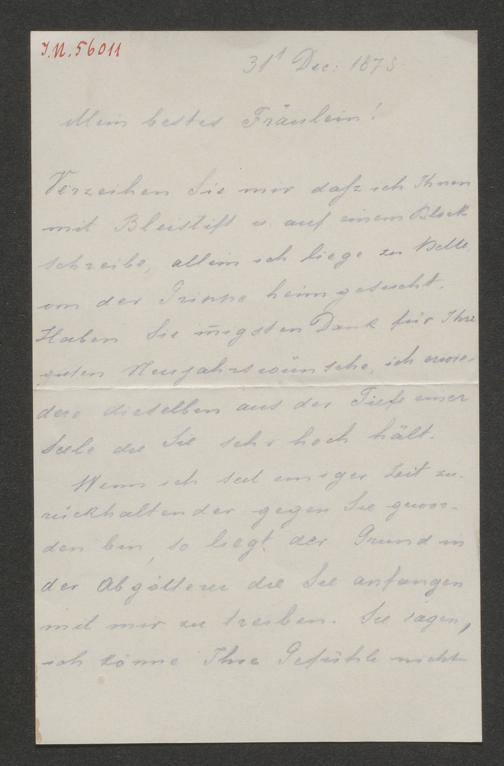 I.N. 56011
31t Dec: 187
Mein bestes Fräulein!
Verzeihen Sie mir dasz ich Ihnen
mit Bleistift u. auf einem Block
schreibe, allein ich liege zu Bette
von der Grippe heimgesucht.
Haben Sie innigsten Dank für Ihre
guten Neujahrswünsche, ich erwie-
dere dieselben aus der Tiefe einer
Seele die Sie sehr hoch hält.
Wenn ich seit einiger Zeit zu-
rückhaltender gegen Sie gewor-
den bin, so liegt der Grund in
der Abgötterei die Sie anfangen
mit mir zu treiben. Sie sagen,
ich könne Ihre Gefühle nicht